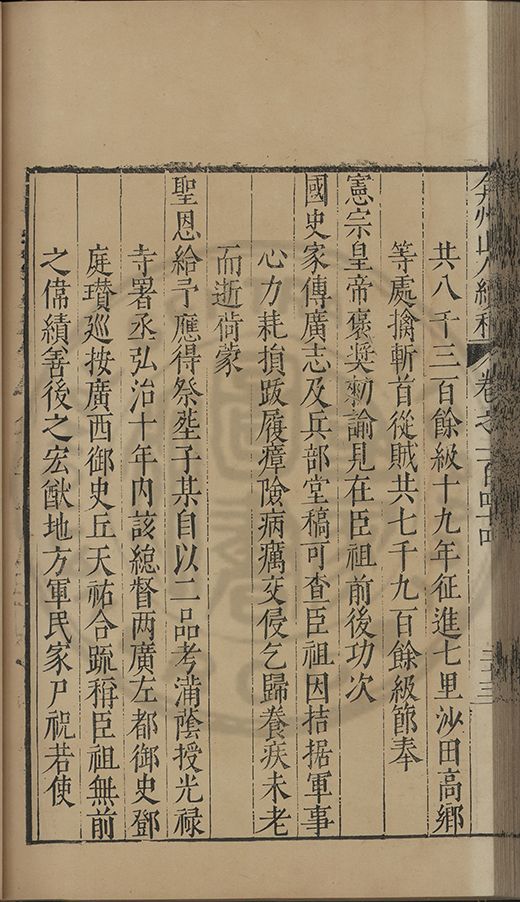 弇州山人續稿
卷之一百四十四
共八千三百餘級十九年征進七里沙田高鄉
等處擒斬首從賊共七千九百餘級節奉
憲宗皇帝褒奨勑諭見在臣祖前後功次
國史家傳廣志及兵部堂稿可查臣祖因拮据軍事
心力耗損跋履瘴險病癘交侵乞歸養疾未老
而逝荷蒙
聖恩給予應得祭塟子某自以二品考滿蔭授光禄
寺署丞弘治十年內該緫督两廣左都御史鄧
庭瓚巡按廣西御史丘天祐合䟽稱臣祖無前
之偉績善後之宏猷地方軍民家尸祝若使